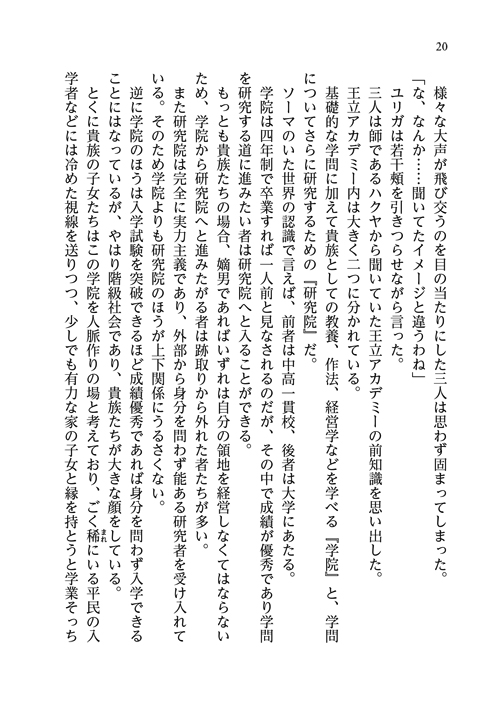 20
様々な大声が飛び交うのを目の当たりにした三人は思わず固まってしまった。
「な、なんか……聞いてたイメージと違うわね」
ユリガは若干頬を引きつらせながら言った。
三人は師であるハクヤから聞いていた王立アカデミーの前知識を思い出した。
王立アカデミー内は大きく二つに分かれている。
基礎的な学問に加えて貴族としての教養、作法、経営学などを学べる『学院』と、学問
についてさらに研究するための『研究院』だ。
ソーマのいた世界の認識で言えば、前者は中高一貫校、後者は大学にあたる。
学院は四年制で卒業すれば一人前と見なされるのだが、その中で成績が優秀であり学問
を研究する道に進みたい者は研究院へと入ることができる。
もっとも貴族たちの場合、嫡男であればいずれは自分の領地を経営しなくてはならない
ため、学院から研究院へと進みたがる者は跡取りから外れた者たちが多い。
また研究院は完全に実力主義であり、外部から身分を問わず能ある研究者を受け入れて
いる。そのため学院よりも研究院のほうが上下関係にうるさくない。
逆に学院のほうは入学試験を突破できるほど成績優秀であれば身分を問わず入学できる
ことにはなっているが、やはり階級社会であり、貴族たちが大きな顔をしている。
とくに貴族の子女たちはこの学院を人脈作りの場と考えており、ごく稀にいる平民の入
学者などには冷めた視線を送りつつ、少しでも有力な家の子女と縁を持とうと学業そっち